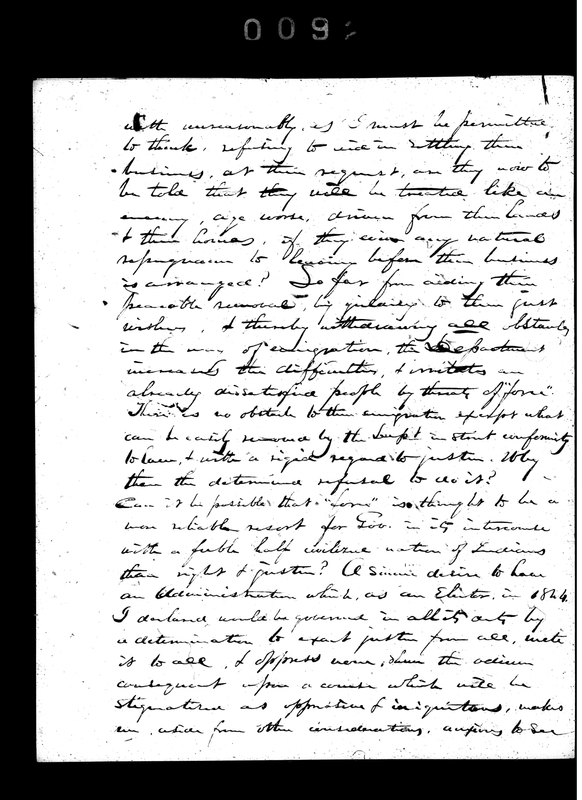 009
with unreasonably, as I must be permitted
to think, refusing to aid in settling their
business, at their request, are they now to
be told that they will be treated like an
enemy, aye worse, driven from their lands
& their homes, if they evince any natural
repugnance to leaving before their business
is arranged? So far from aiding their
peaceable removal, by yielding to their just
wishes, & thereby withdrawing all obstacles
in the way of emigration, the Department
increases the difficulties, & irritates an
already dissatisfied people by threats of "force".
There is no obstacle to their emigration except what
can be easily removed by the Dept. in strict conformity
to law, & with a rigid regard to justice. Why
then the determined refusal to do it?
Can it be possible that "force" is thought to be a
more reliable resort for Gov. in its intercourse
with a feeble half civilized nation of Indians
than right & justice? A sincere desire to have
an Administration which, as an Elector, in 1844,
I declared would be governed in all its acts by
a determination to exact justice from all, mete
it to all, & oppress none, shun the odium
consequent upon a course which will be
stigmatized as oppressive & iniquitous, makes
me, aside from other considerations, anxious to see